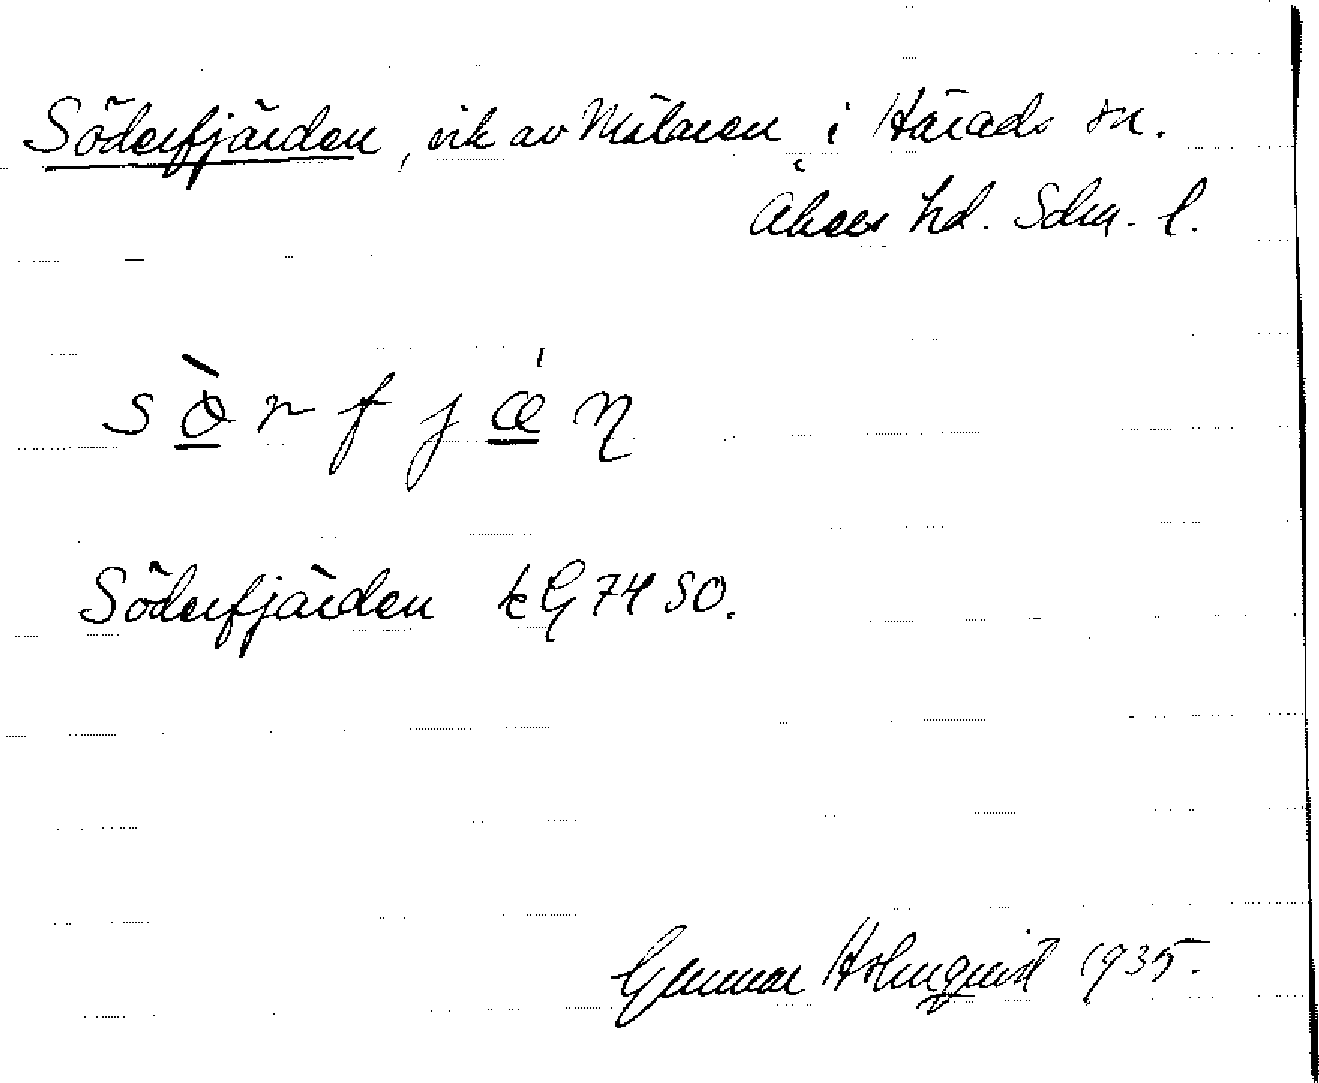 Söderfjärden, vik av Mälaren i Härads sn.
Åkers hd. Söm. l.
s ò̱ r f j ǽ̱ ŋ
Söderfjärden kG 74 SO.
Gunnar Holmquist 1935.